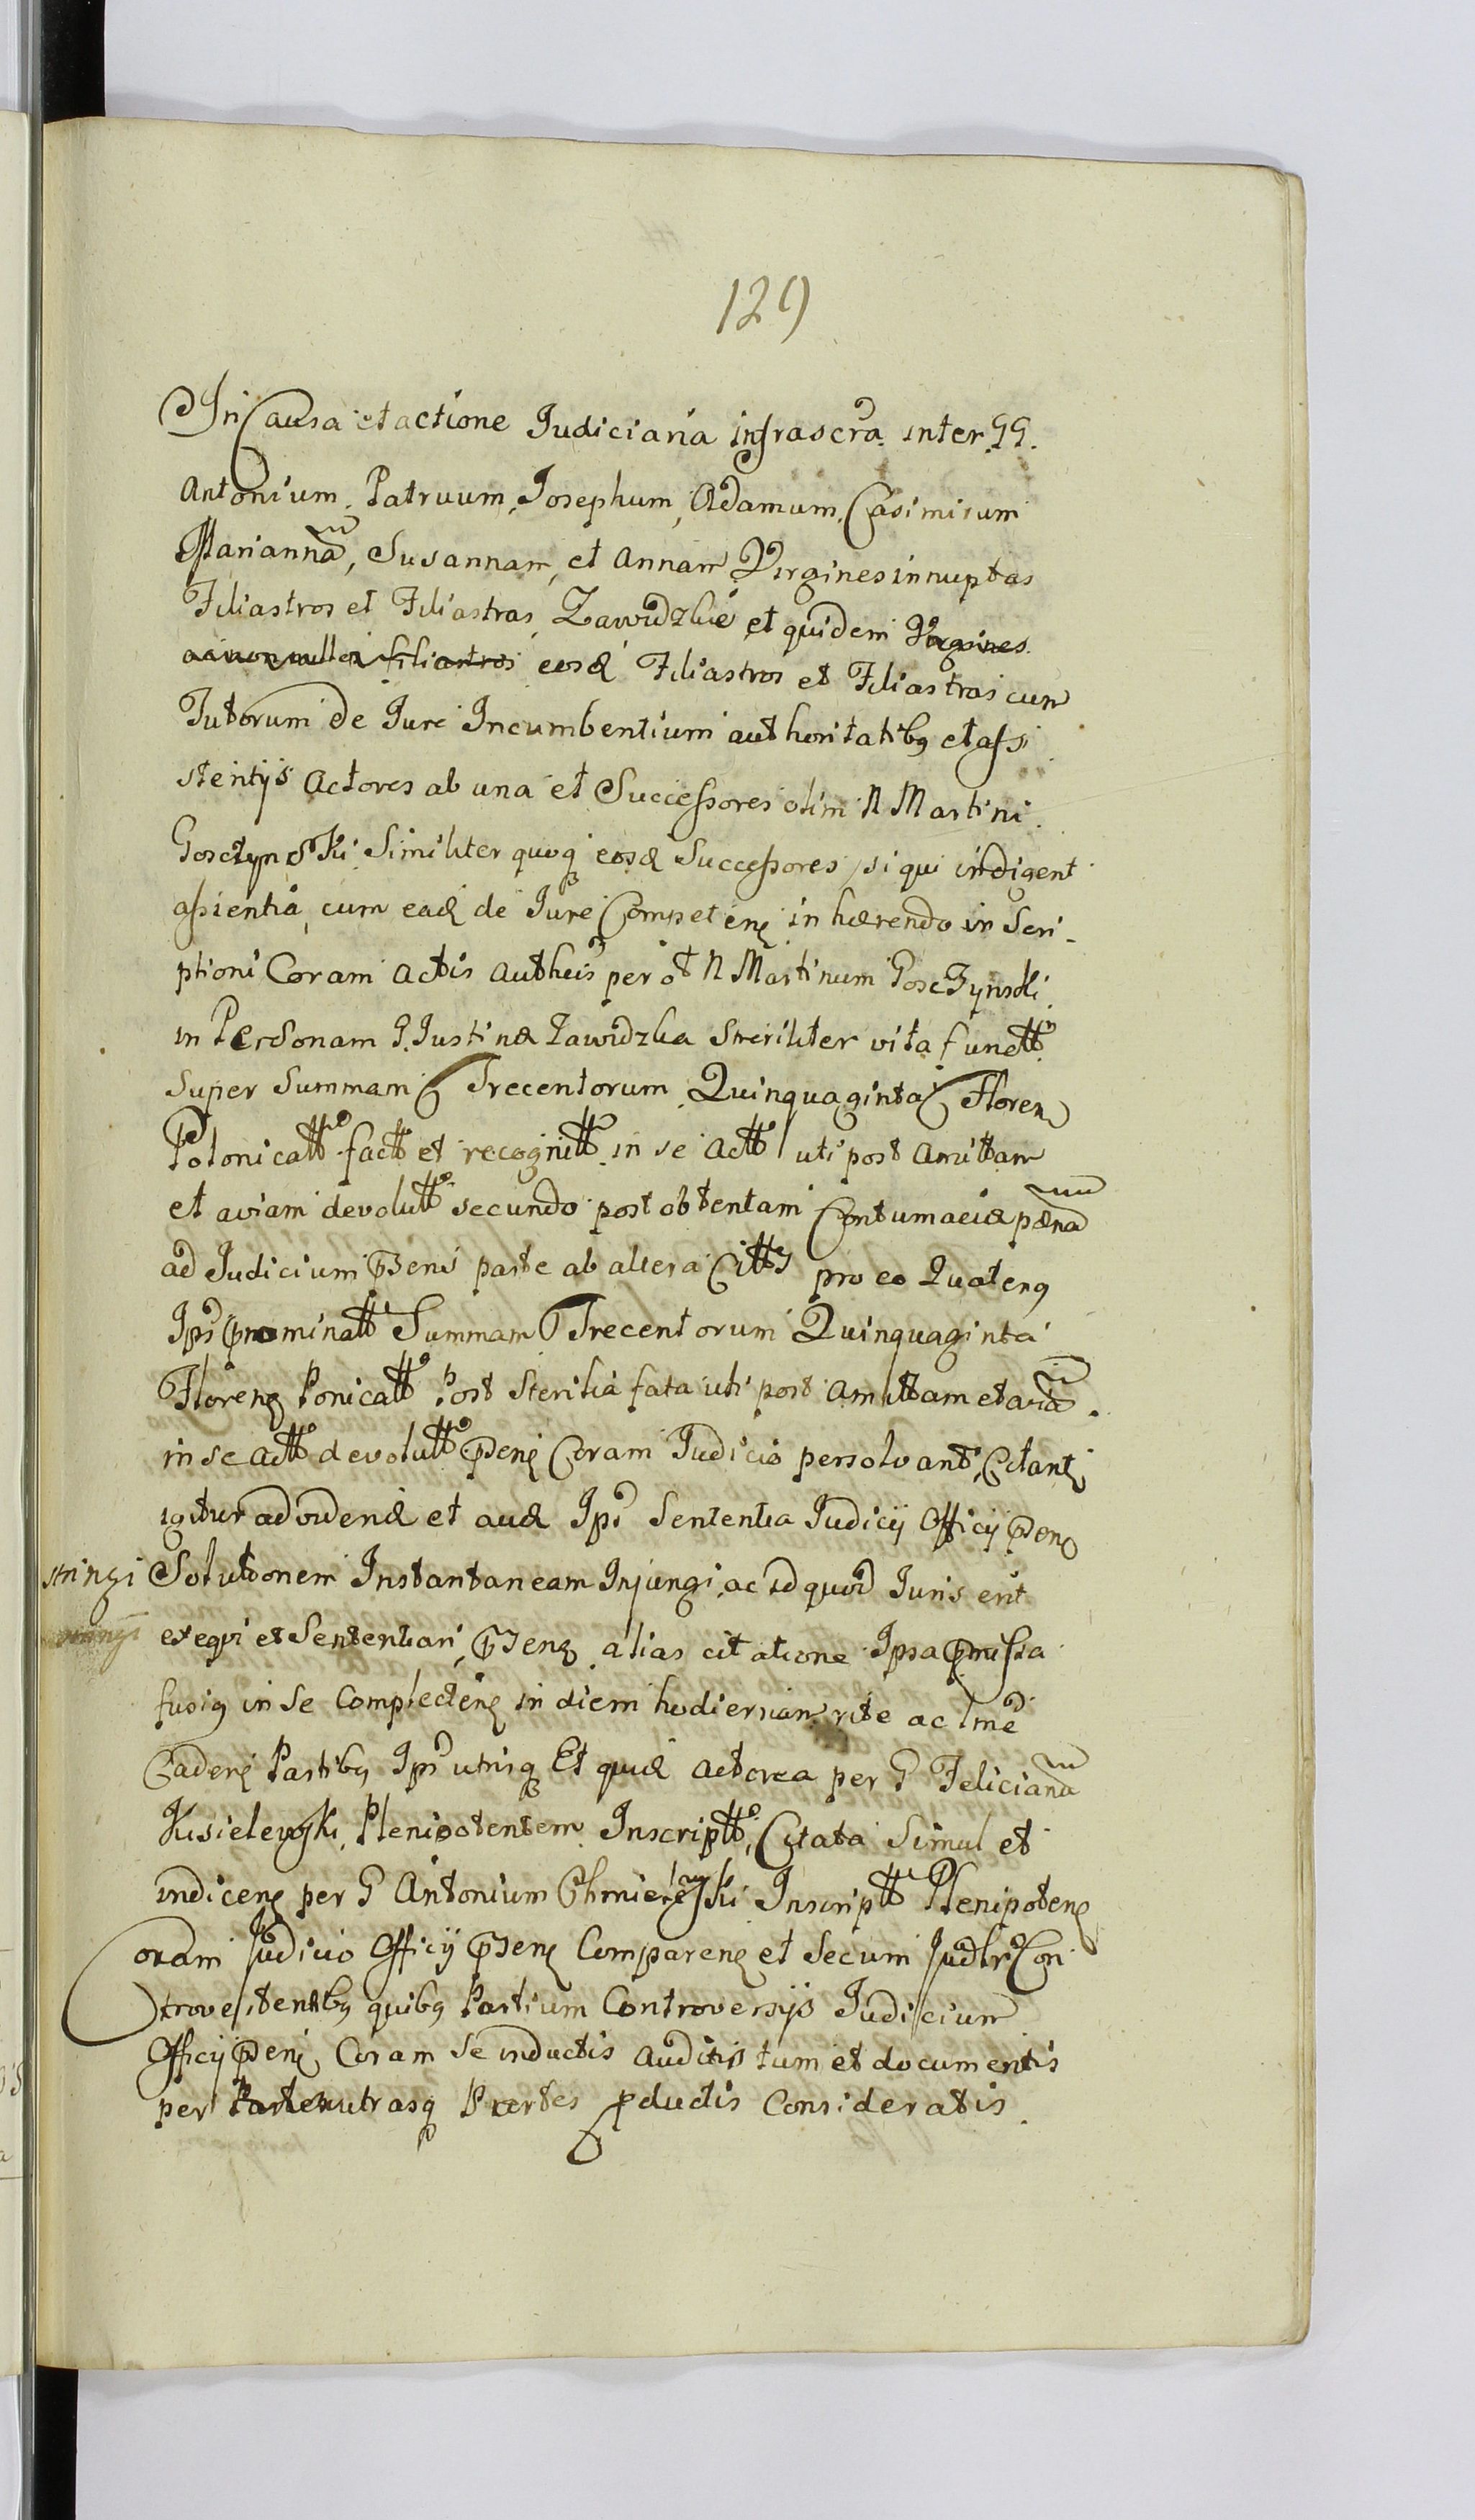 129
In Causa et actione Judiciaria infrascra inter GG.
Antonium, Patruum, Josephum, Adamum, Casimirum
Mariannam, Susannam, et Annam Virgines innuptas
Filiastros et Filiastras Zawidzkie et quidem Virgines
filiastros eosd Filiastros et Filiastras cum
Tutorum de Jure Incumbentium authoritatibq et assi
stentijs Actores ab una et Successores olim N Martini
Gosctynski Similiter quoq eosd Successores, si qui indigent
assientia, cum ead de Jure Competen inhærendo in Scri-
ptioni Coram Actis Autheis per ol N Martinum Goscztynski
in Personam G. Justinæ Zawidzka Steriliter vita functtt
Super Summam Trecentorum Quinquaginta Floren
Polonicatt factt et recognitt in se Actt uti post Amittam
et aviam devolutt secundo post obtentam Contumaciæ pænam
ad Judicium Psens parte ab altera Citttt pro eo Quatenq
Ipsi Pnominatt Summam Trecentorum Quinquaginta
Floren Ponicatt Post Sterilia fata uti post Amittam et aviam
in se Actt devolutt Psens Coram Judicio persolvant, Citant
igitur ad viden et aud Ips Sententia Judicij Officij Psens
stringi Solutionem Instantaneam Injungi, ac id quod Juris erit
exeqvi et Sententiari, Psens alias citatione Ipsa Pmissa
fusiq in Se Complecten in diem hodiernam rite ac lme
Caden Partibq Ips utrisq Et quid Actorea per G Felicianum
Kisielewski, Plenipotentem Inscriptt, Citata Simul et
indicen per G Antonium Chmielewski Inscriptt Plenipoten
Coram Judicio Officij Psens Comparen et Secum Judlr Con
troverstentibq quibq Partium Controversijs Judicium
Officij Psens Coram Se inductis auditis tum et documentis
per Partes utrasq Partes pductis Consideratis